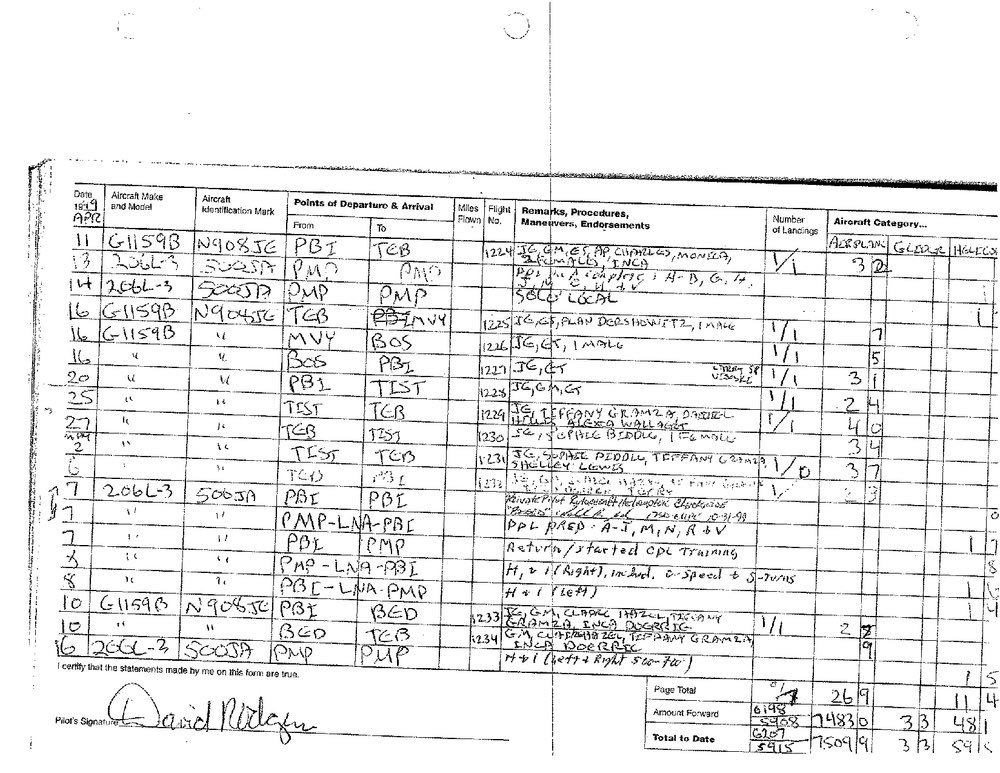 Date 1999 Aircraft Make and Model Aircraft Identification Mark Points of Departure & Arrival Miles Flown Flight No. Remarks, Procedures, Maneuvers, Endorsements Number of Landings Aircraft Category...
APR From To AIRPLANE GLIDER
11 G1159B N908JE PBI TEB 1224 JE, GM, ET, AP, CHARLES, MONICA, 1/1 3
2 FEMALES, INCA
13 206L-3 500JA PMP PMP
14 206L-3 500JA PMP PMP SOLO LOCAL
16 G1159B N908JE TEB PBI MVY 1225 JE, ET, ALAN DERSHOWITZ, 1 MALE 1/1 7
16 G1159B " MVY BOS 1226 JE, ET, 1 MALE 1/1 5
16 " " BOS PBI 1227 JE, ET 1/1 3 1
20 " " PBI TIST 1228 JE, GM, ET 2 4
25 " " TIST TEB 1229 JE, TIFFANY GRAMZA, 1/1 4 0
ALEXIA WALLAERT
27 " " TEB TIST 1230 JE, SOPHIE BIDDLE, 1 FEMALE 3 4
MAY 2 " " TIST TEB 1231 JE, SOPHIE BIDDLE, TIFFANY GRAMZA, 1/0 3 7
SHELLEY LEWIS
6 " " TEB PBI 1232
7 206L-3 500JA PBI PBI Private Pilot Rotorcraft Helicopter
7 " " PMP-LNA-PBI PPL PREP: A-J, M, N, R & V
7 " " PBI PMP Return/started CPL Training 1
8 " " PMP-LNA-PBI H, & i (Right), 8
8 " " PBI-LNA-PMP H & i (Left) 1
10 G1159B N908JE PBI BED 1233 JE, GM, CLAIRE HAZEL, TIFFANY 1/1 2 8
GRAMZA, INCA DOERRIG
10 " " BED TEB 1234 GM, CLAIRE HAZEL, TIFFANY GRAMZA, 9
INCA DOERRIG
16 206L-3 500JA PMP PMP H & i (Left & Right) 1 5
I certify that the statements made by me on this form are true.
Page Total 26 9 11 4
Pilot's Signature David Rodgers
Amount Forward 6198 5908 7483 0 3 3 48 1
Total to Date 6207 5915 7509 9 3 3 59